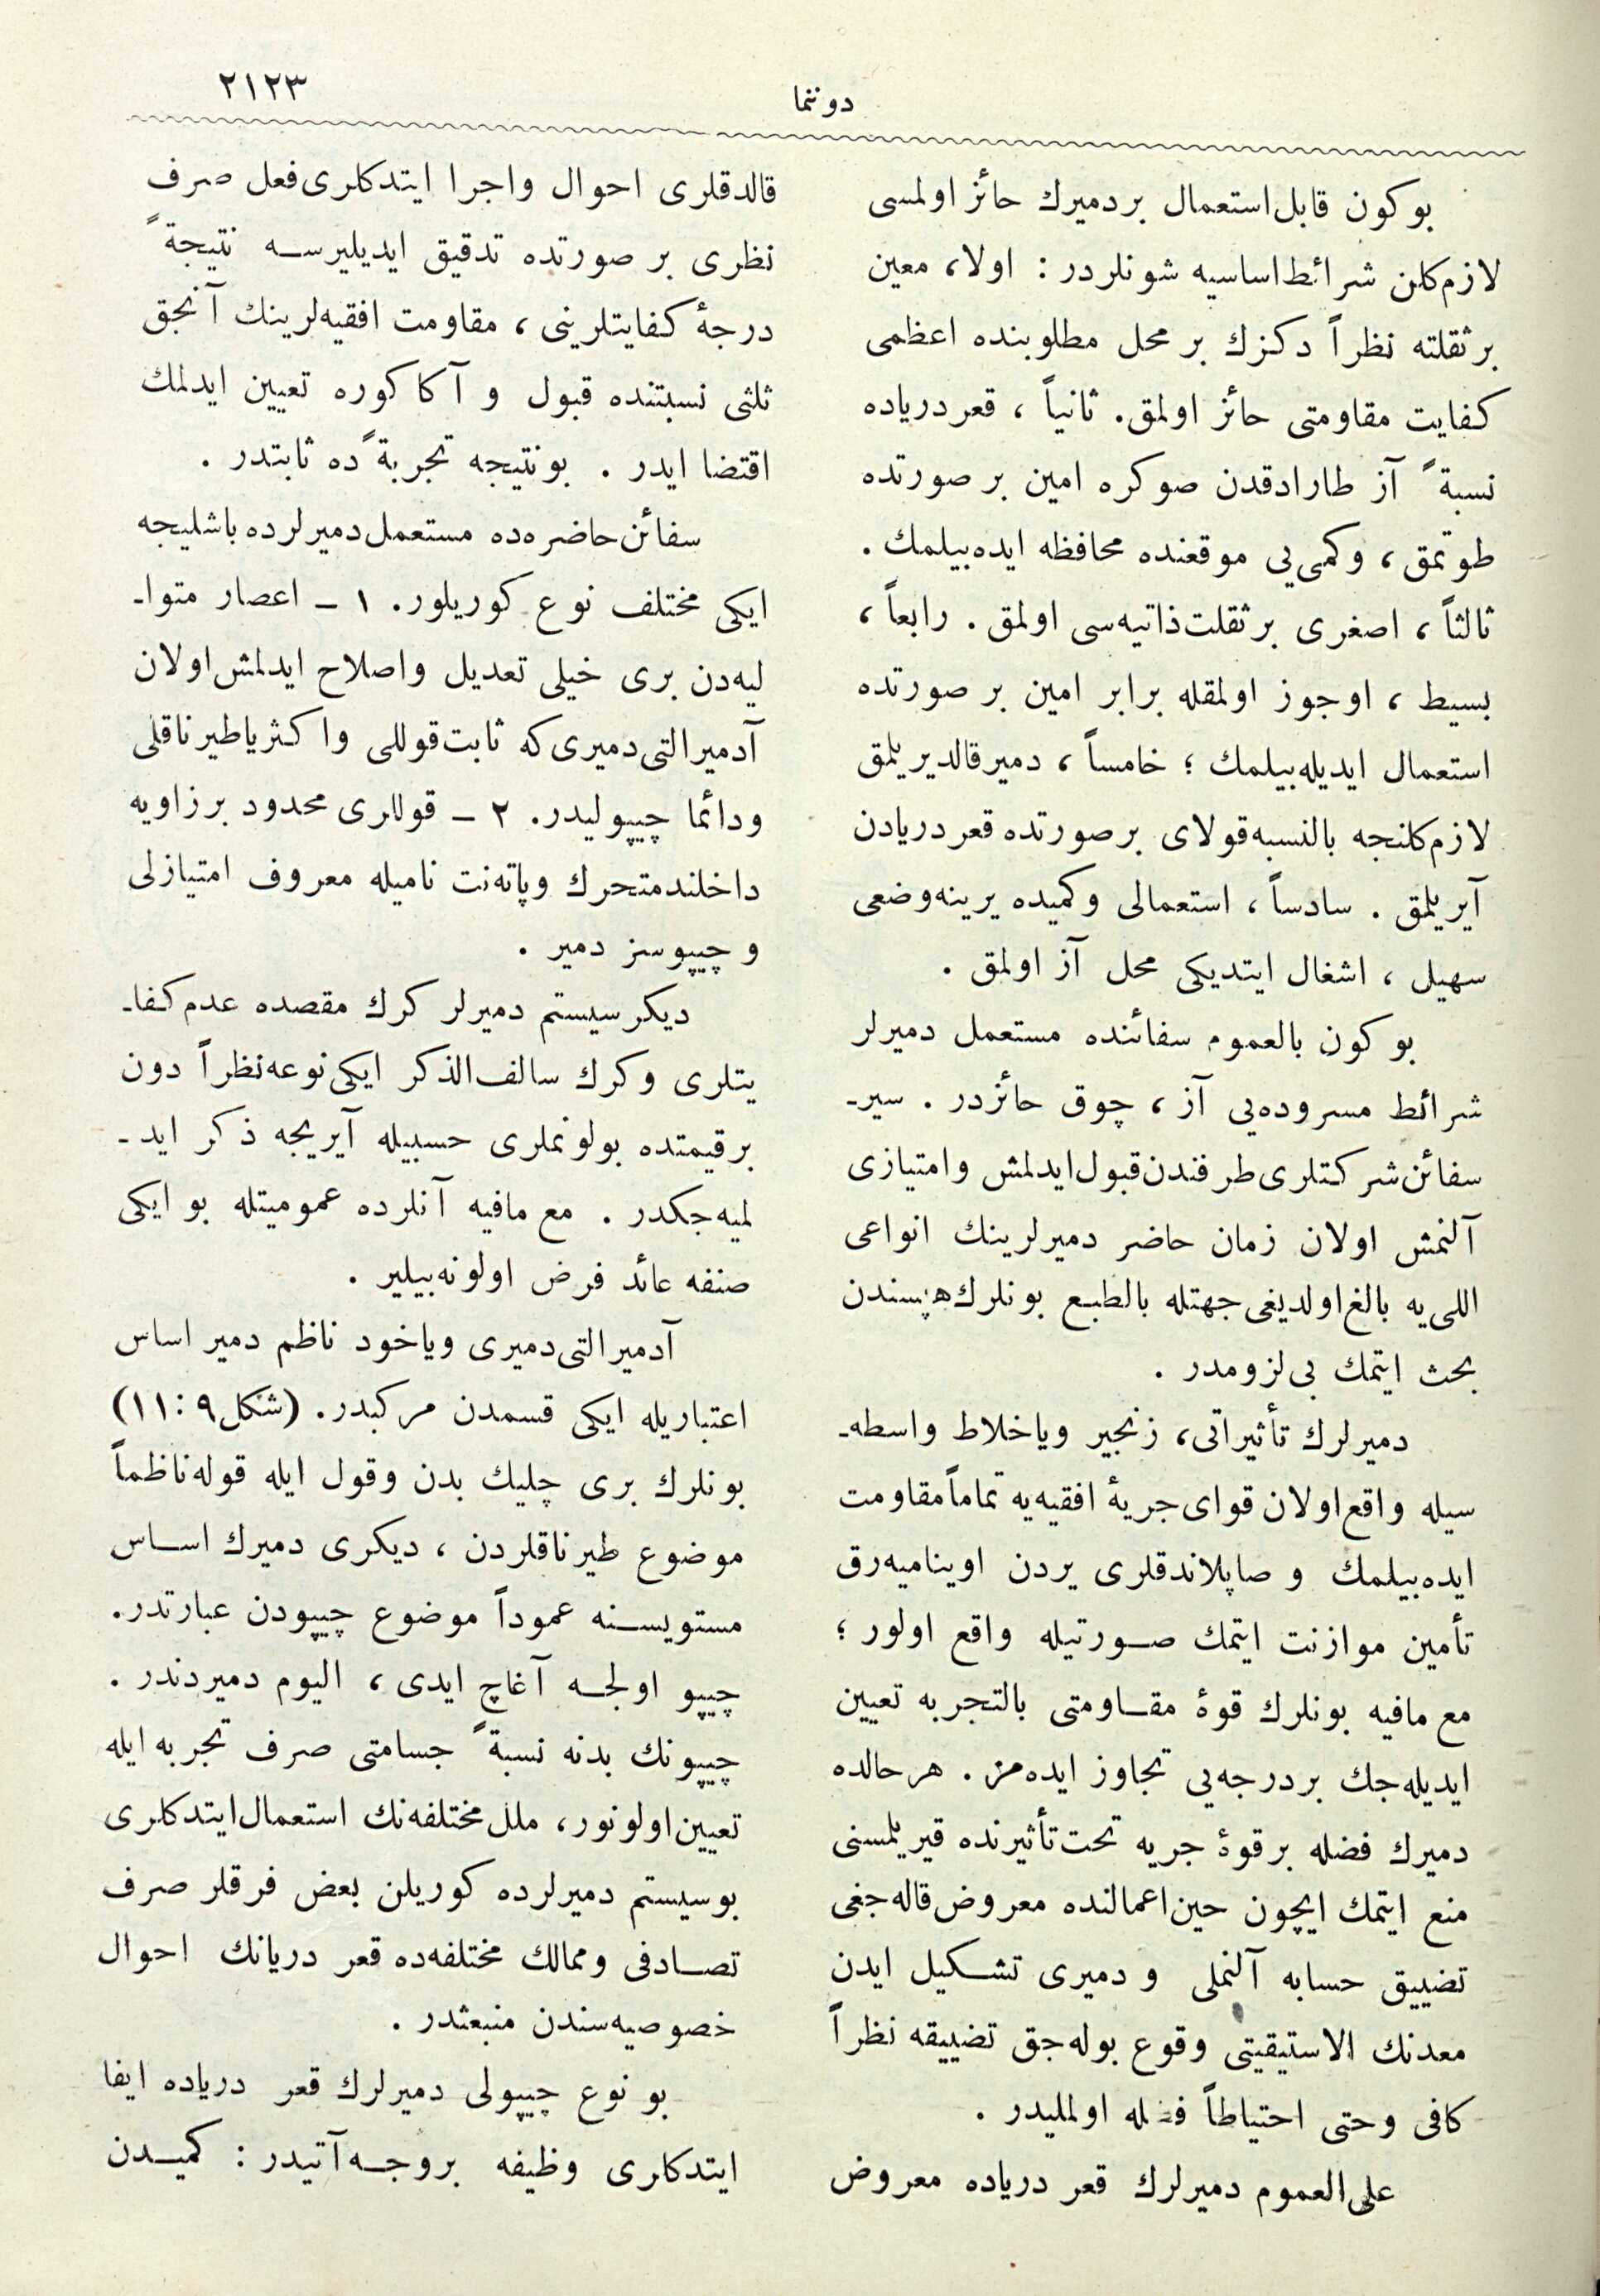 ٢١٢٣
دوننما
بوكون قابل‌استعمال بردميرك حائز اولمسى
لازم‌كلن شرائط‌اساسيه شونلردر : اولا، معين
برثقلته نظراً دكزك بر محل مطلوبنده اعظمى
كفايت مقاومتى حائز اولمق. ثانياً ، قعردرياده
نسبةً آز طارادقدن صوكره امين بر صورتده
طوتمق ، وكمى‌يى موقعنده محافظه ايده‌بيلمك .
ثالثاً ، اصغرى برثقلت‌ذاتيه‌سى اولمق . رابعاً ،
بسيط ، اوجوز اولمقله برابر امين بر صورتده
استعمال ايديله‌بيلمك ؛ خامساً ، دميرقالديريلمق
لازم‌كلنجه بالنسبه‌قولاى برصورتده قعردريادن
آيريلمق . سادساً ، استعمالى وكميده يرينه‌وضعى
سهيل ، اشغال ايتديكى محل آز اولمق .
بوكون بالعموم سفائنده مستعمل دميرلر
شرائط مسروده‌يى آز ، چوق حائزدر . سير-
سفائن‌شركتلرى‌طرفندن‌قبول‌ايدلمش وامتيازى
آلنمش اولان زمان حاضر دميرلرينك انواعى
اللى‌يه بالغ‌اولديغى‌جهتله بالطبع بونلرك‌هپسندن
بحث ايتمك بى‌لزومدر .
دميرلرك تأثيراتى، زنجير وياخلاط واسطه-
سيله واقع‌اولان قواى‌جريهٔ افقيه‌يه تماماً‌مقاومت
ايده‌بيلمك و صاپلاندقلرى يردن اوينامیه‌رق
تأمين موازنت ايتمك صورتيله واقع اولور ؛
مع‌مافيه بونلرك قوهٔ مقاومتى بالتجربه تعيين
ايديله‌جك بردرجه‌يى تجاوز ايده‌مز . هرحالده
دميرك فضله برقوهٔ جريه تحت‌تأثيرنده قيريلمسنى
منع ايتمك ايچون حين‌اعمالنده معروض‌قاله‌جغى
تضييق حسابه آلنملى و دميرى تشكيل ايدن
معدنك الاستيقيتى وقوع بوله‌جق تضييقه نظراً
كافى وحتى احتياطاً فضله اولمليدر .
على‌العموم دميرلرك قعر درياده معروض
قالدقلرى احوال واجرا ايتدكلرى‌فعل صرف
نظرى بر صورتده تدقيق ايديليرسه نتيجةً
درجهٔ كفايتلرينى ، مقاومت افقيه‌لرينك آنجق
ثلثى نسبتنده قبول و آكا كوره تعيين ايدلمك
اقتضا ايدر . بونتيجه تجربةً ده ثابتدر .
سفائن‌حاضره‌ده مستعمل‌دميرلرده باشليجه
ايكى مختلف نوع كوريلور. ١ – اعصار متوا-
ليه‌دن برى خيلى تعديل واصلاح ايدلمش‌اولان
آدميرالتى‌دميرى‌كه ثابت‌قوللى واكثرياطيرناقلى
ودائما چيپوليدر. ٢ – قوللرى محدود برزاويه
داخلندمتحرك وپاته‌نت ناميله معروف امتيازلى
و چيپوسز دمير .
ديكرسيستم دميرلر كرك مقصده عدم‌كفا-
يتلرى وكرك سالف‌الذكر ايكى‌نوعه‌نظراً دون
برقيمتده بولونملرى حسبيله آيريجه ذكر ايد-
لميه‌جكدر . مع‌مافيه آنلرده عموميتله بو ايكى
صنفه عائد فرض اولونه‌بيلير .
آدميرالتى‌دميرى وياخود ناظم دمير اساس
اعتباريله ايكى قسمدن مركبدر. (شكل٩ :١١)
بونلرك برى چليك بدن وقول ايله قوله‌ناظماً
موضوع طيرناقلردن ، ديكرى دميرك اساس
مستويسنه عموداً موضوع چيپودن عبارتدر.
چيپو اولجه آغاچ ايدى ، اليوم دميردندر .
چيپونك بدنه نسبةً جسامتى صرف تجربه ايله
تعيين‌اولونور، ملل‌مختلفه‌نك استعمال‌ايتدكلرى
بوسيستم دميرلرده كوريلن بعض فرقلر صرف
تصادفى وممالك مختلفه‌ده قعر دريانك احوال
خصوصيه‌سندن منبعثدر .
بو نوع چيپولى دميرلرك قعر درياده ايفا
ايتدكلرى وظيفه بروجه‌آتيدر : كميدن